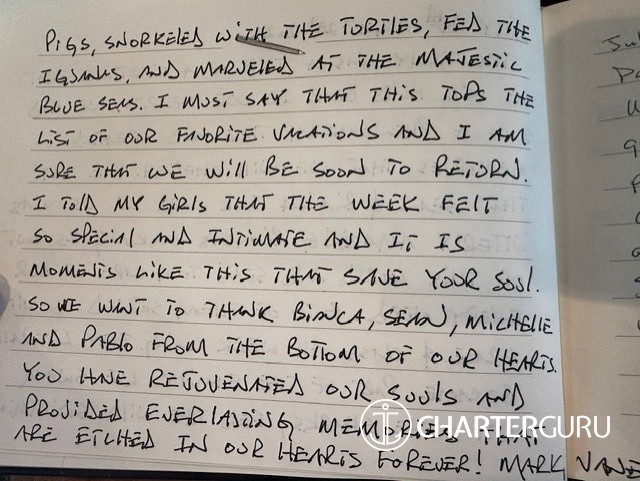 PIGS, SNORKELED WITH THE TORTLES, FED THE
IGUANAS, AND MARVELED AT THE MAJESTIC
BLUE SEAS. I MUST SAY THAT THIS TOPS THE
LIST OF OUR FAVORITE VACATIONS AND I AM
SURE THAT WE WILL BE SOON TO RETURN.
I TOLD MY GIRLS THAT THE WEEK FELT
SO SPECIAL AND INTIMATE AND IT IS
MOMENTS LIKE THIS THAT SAVE YOUR SOUL.
SO WE WANT TO THANK BIANCA, SEAN, MICHELLE
AND PABLO FROM THE BOTTOM OF OUR HEARTS.
YOU HAVE REJUVENATED OUR SOULS AND
PROVIDED EVERLASTING MEMORIES THAT
ARE ETCHED IN OUR HEARTS FOREVER! MARK
CHARTERGURU